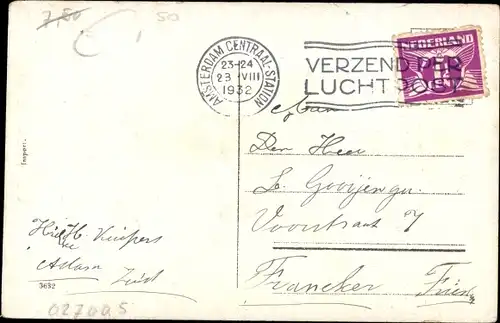 7,50
50
AMSTERDAM CENTRAAL-STATION
23-24
23 VIII
1932
VERZEND PER
LUCHTPOST
NEDERLAND
1½
CENT
Aan
Den Heer
Voorstraat 7
Franeker
Import:
H. Kuipers
Adam Zuid
3632
027005